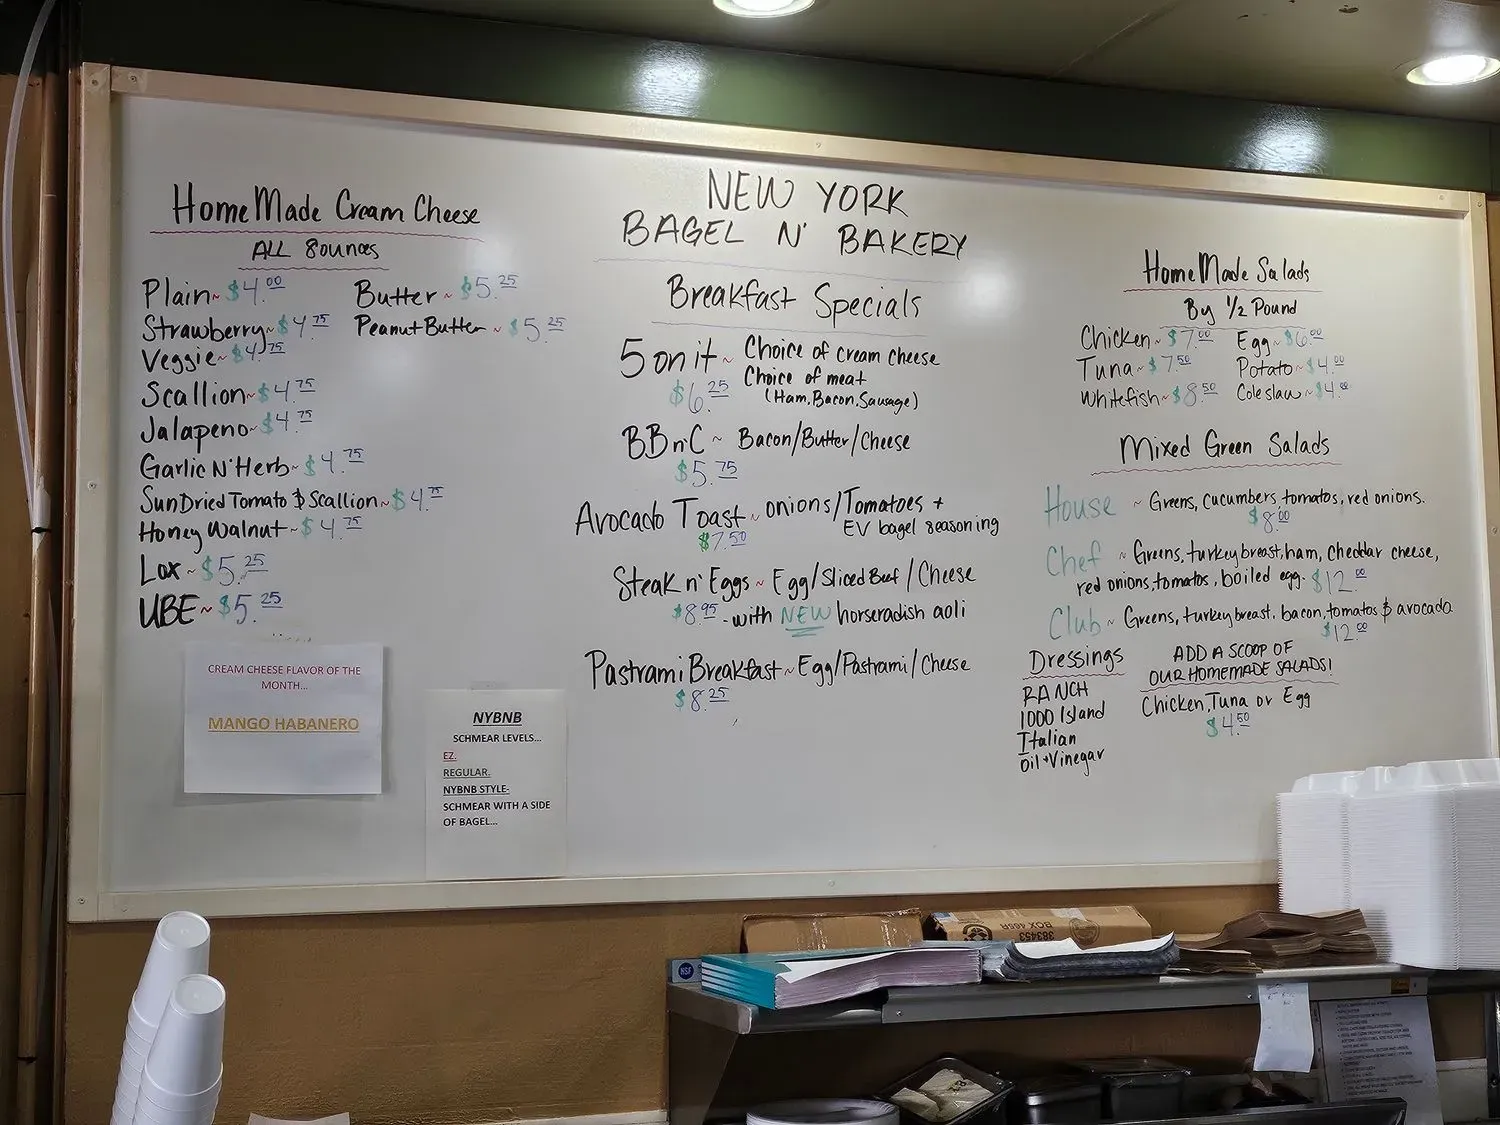 NEW YORK
BAGEL N' BAKERY
HomeMade Cream Cheese
ALL 8ounces
Plain ~ $4.00
Strawberry ~ $4.75
Veggie ~ $4.75
Scallion ~ $4.75
Jalapeno ~ $4.75
Garlic N' Herb ~ $4.75
SunDried Tomato & Scallion ~ $4.75
Honey Walnut ~ $4.75
Lox ~ $5.25
UBE ~ $5.25
Butter ~ $5.25
Peanut Butter ~ $5.25
CREAM CHEESE FLAVOR OF THE
MONTH...
MANGO HABANERO
NYBNB
SCHMEAR LEVELS...
EZ.
REGULAR.
NYBNB STYLE-
SCHMEAR WITH A SIDE
OF BAGEL...
Breakfast Specials
5 on it ~ Choice of cream cheese
$6.25 Choice of meat
(Ham, Bacon, Sausage)
BB n' C ~ Bacon/Butter/Cheese
$5.75
Avocado Toast ~ onions/Tomatoes +
EV bagel seasoning
$7.50
Steak n' Eggs ~ Egg/Sliced Beef/Cheese
$8.95 - with NEW horseradish aoli
Pastrami Breakfast ~ Egg/Pastrami/Cheese
$8.25
HomeMade Salads
By 1/2 Pound
Chicken ~ $7.00 Egg ~ $6.00
Tuna ~ $7.50 Potato ~ $4.00
Whitefish ~ $8.50 Coleslaw ~ $4.00
Mixed Green Salads
House ~ Greens, cucumbers, tomatos, red onions.
$8.00
Chef ~ Greens, turkey breast, ham, cheddar cheese,
red onions, tomatos, boiled egg. $12.00
Club ~ Greens, turkey breast, bacon, tomatos & avocado
$12.00
Dressings
RANCH
1000 Island
Italian
Oil + Vinegar
ADD A SCOOP OF
OUR HOMEMADE SALADS!
Chicken, Tuna or Egg
$4.50
NSF
BOX 406R
383453